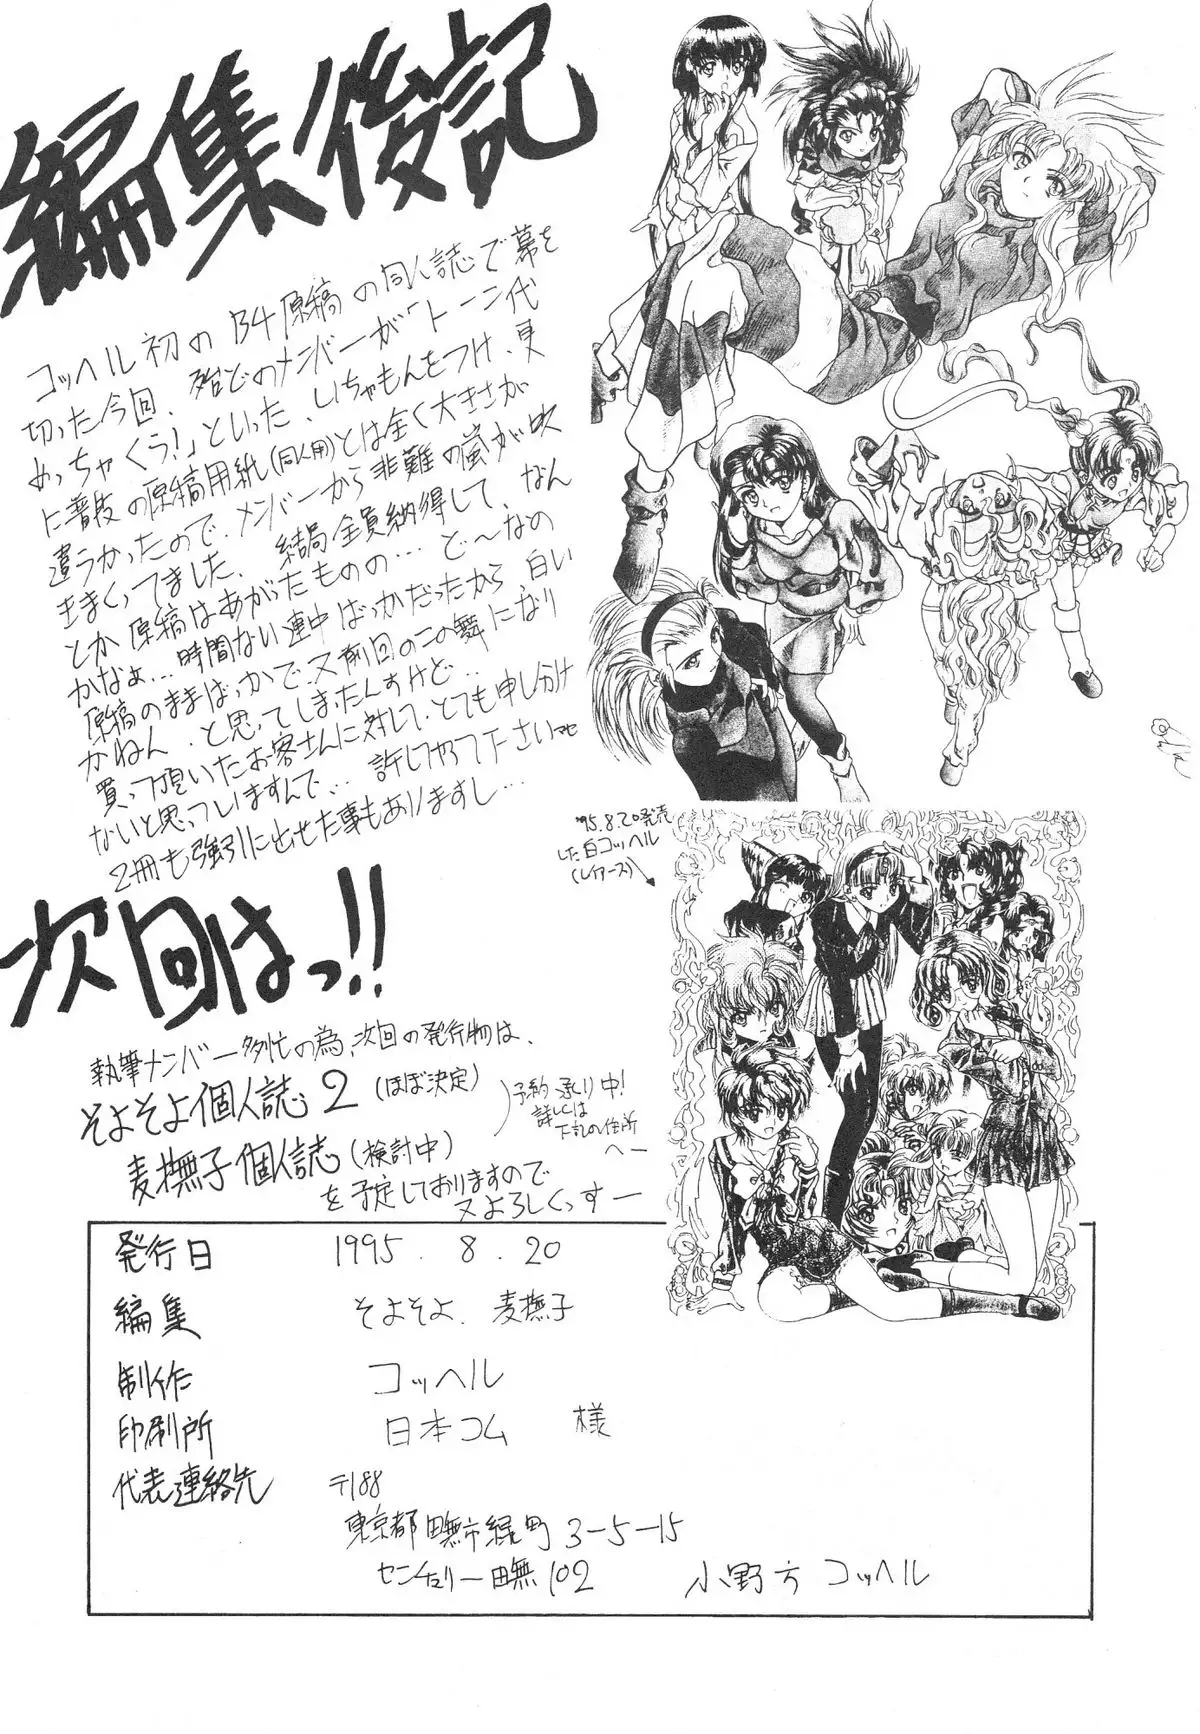 編集後記
コッヘル初のB4原稿の同人誌で幕を
切った今回、殆どのメンバーが「トーン代
めっちゃくう!」といった、いちゃもんをつけ、更
に普段の原稿用紙(同人用)とは全く大きさが
違うかったので、メンバーから非難の嵐が吹
きまくってました、結局全員納得して、なん
とか原稿はあがったものの…ど〜なの
かなぁ…時間ない連中ばっかだったから白い
原稿のままばっかで、又前回の二の舞になり
かねん、と思ってしまったんすけど…
買って頂いたお客さんに対して、とても申し分け
ないと思っていますんで…許してやって下さいませ
2冊も強引に出せた事もありますし…
'95.8.20発売
した白コッヘル
(レイアース)
次回はっ!!
執筆メンバー多忙の為、次回の発行物は、
そよそよ個人誌2(ほぼ決定)
麦撫子個人誌(検討中)
予約承り中!
詳しくは
下記の住所
へー
を予定しておりますので
又よろしくっすー
発行日 1995.8.20
編集 そよそよ、麦撫子
制作 コッヘル
印刷所 日本コム 様
代表連絡先 〒188
東京都田無市緑町3-5-15
センチュリー田無102 小野方 コッヘル